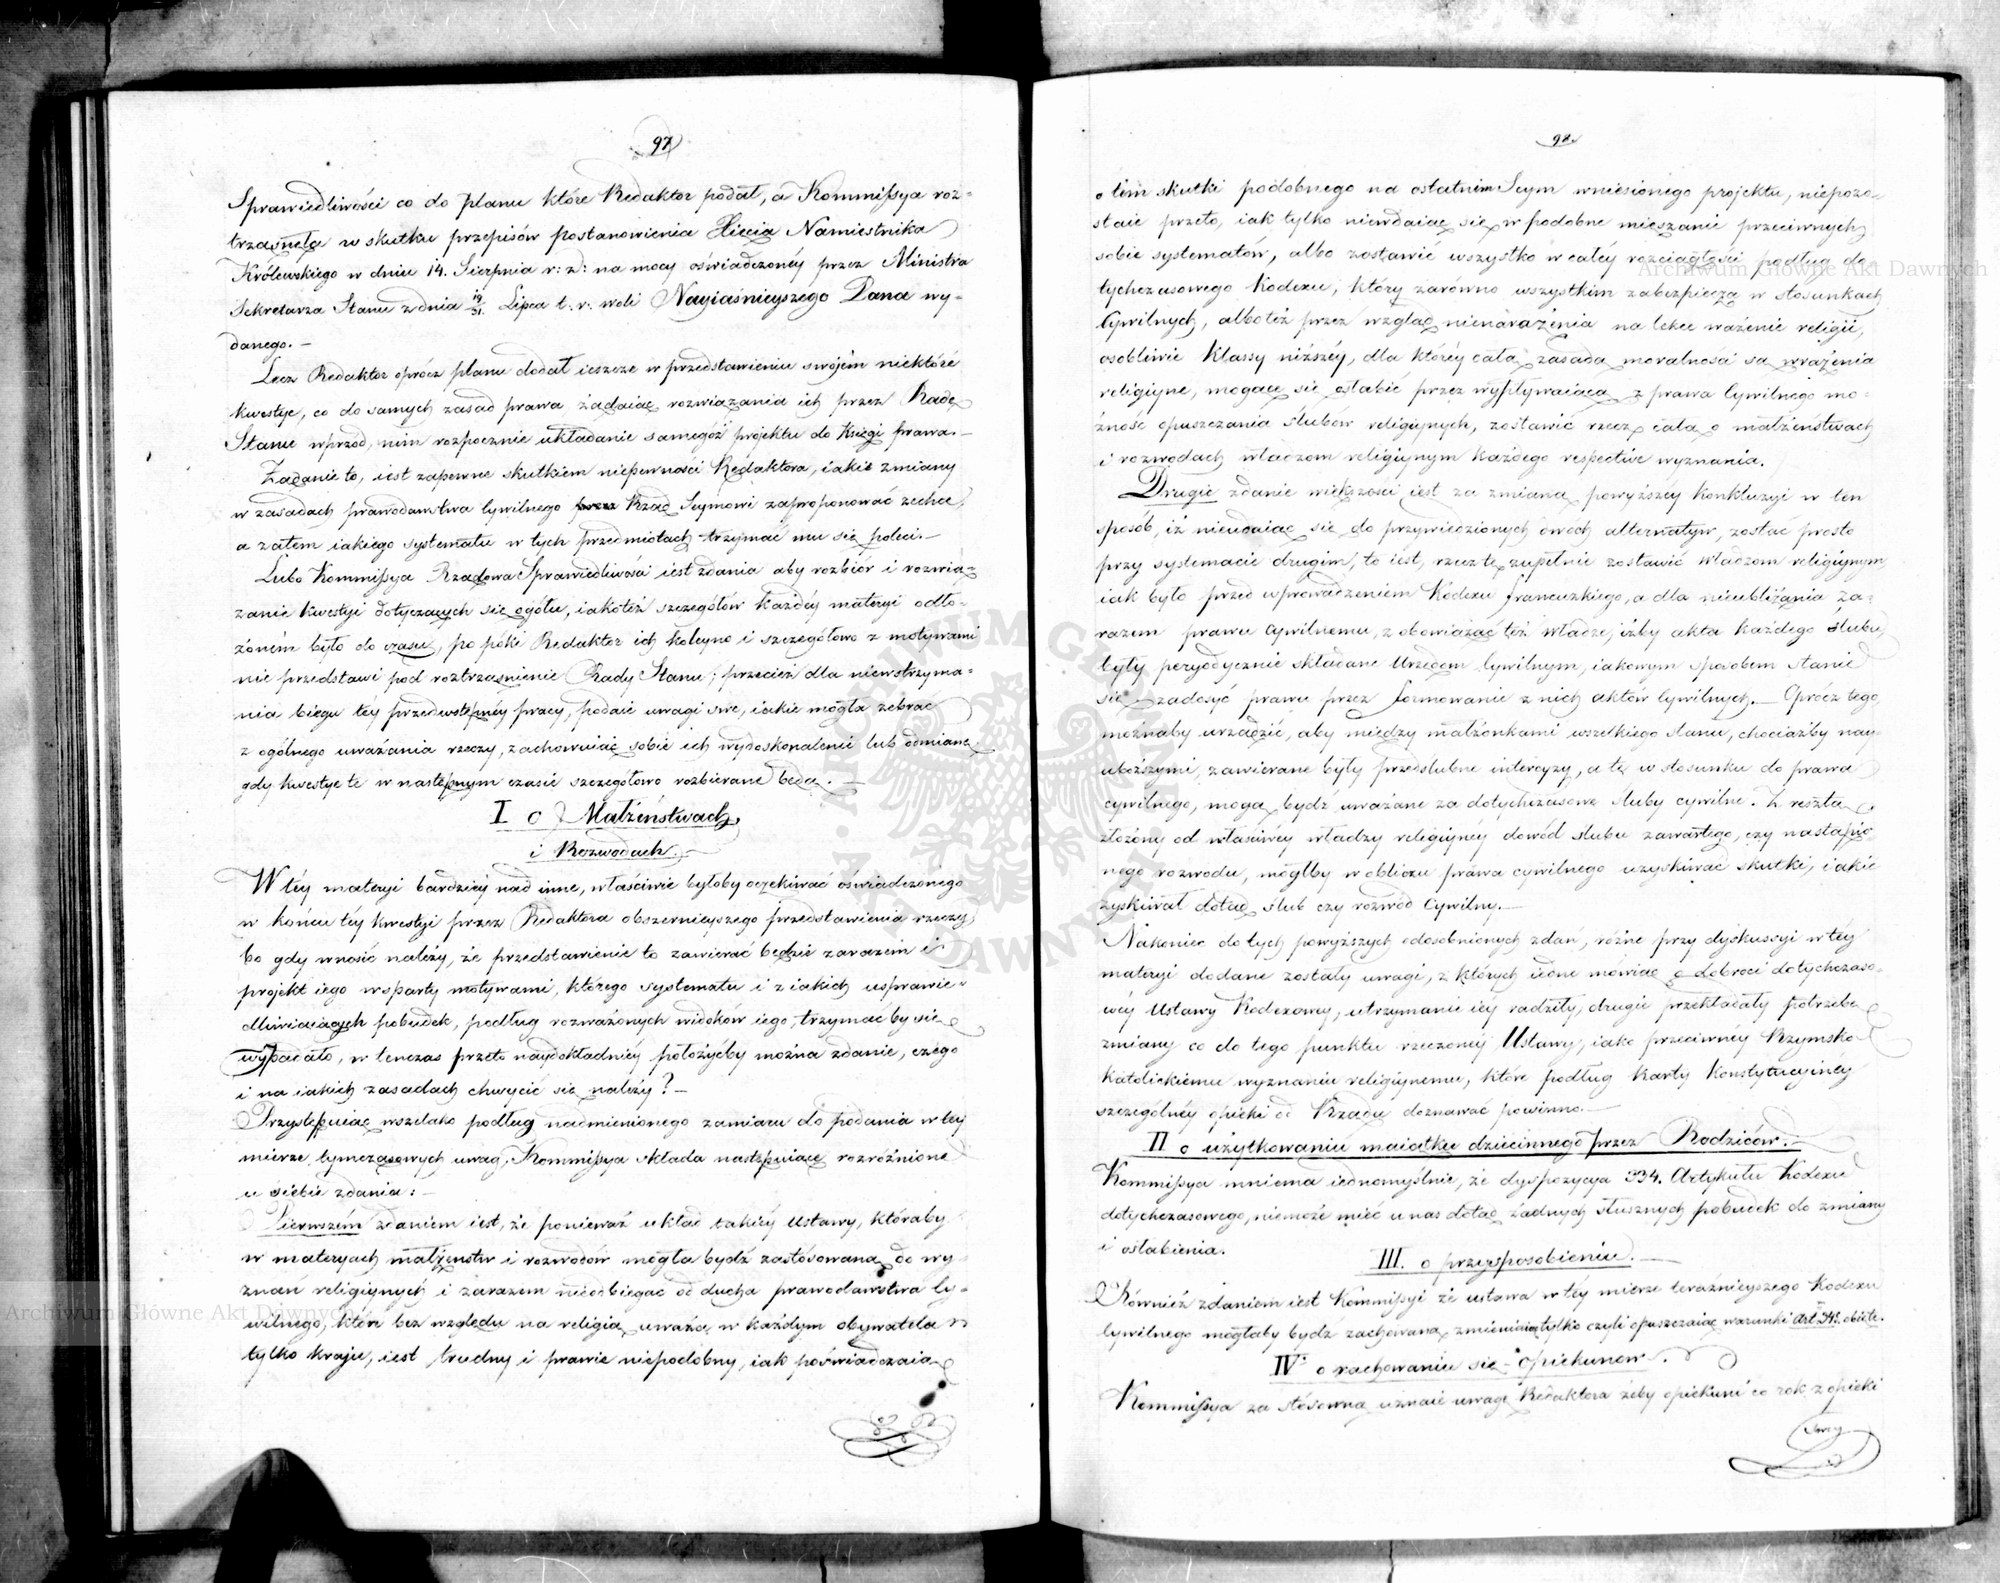 97
Sprawiedliwości co do planu które Redaktor podał, a Kommissya roz=
trząsnęła w skutku przepisów Postanowienia Xięcia Namiestnika
Królewskiego w dniu 14. Sierpnia r: z: na mocy oświadczonéy przez Ministra
Sekretarza Stanu z dnia 19/31. Lipca t. r. woli Nayiaśnieyszego Pana wy=
danego. —
Lecz Redaktor oprócz planu dodał ieszcze w przedstawieniu swojém niektóré
kwestye, co do samych zasad prawa, żądaiąc rozwiązania ich przez Radę
Stanu wprzód, nim rozpocznie układanie samegoż projektu do Księgi prawa. —
Żądanie to, iest zapewne skutkiem niepewności Redaktora, iakie zmiany
w zasadach prawodawstwa Cywilnego przez Rząd Seymowi zaproponować zechce,
a zatem iakiego systematu w tych przedmiotach trzymać mu się poleci. —
Lubo Kommissya Rządowa Sprawiedliwości iest zdania aby rozbiór i rozwią=
zanie kwestyi dotyczących się ogółu, iakoteż szczegółów każdéy materyi odło=
żoném było do czasu, po póki Redaktor ich koleyno i szczegółowo z motywami
nie przedstawi pod roztrząśnienie Rady Stanu; przecież dla niewstrzyma=
nia biegu téy przedwstępnéy pracy, podaie uwagi swe, iakie mogła zebrać
z ogólnego uważania rzeczy, zachowuiąc sobie ich wydoskonalenie lub odmianę,
gdy kwestye te w następnym czasie szczegółowo rozbierane będą. —
I o Małżeństwach,
i Rozwodach. —
W téy materyi bardziéy nad inne, właściwie byłoby oczekiwać oświadczonego
w końcu téy kwestyi przez Redaktora obszernieyszego przedstawienia rzeczy,
bo gdy wnosić należy, że przedstawienie to zawierać będzie zarazem i
projekt iego wsparty motywami, którego systematu i z iakich usprawie=
dliwiaiących pobudek, podług rozważonych widoków iego, trzymać by się
wypadało, w tenczas przeto naydokładniéy położyćby można zdanie, czego
i na iakich zasadach chwycić się należy? —
Przystępuiąc wszelako podług nadmienionego zamiaru do podania w téy
mierze tymczasowych uwag, Kommissya składa następuiące rozróżnione
u siebie zdania: —
Pierwszém zdaniem iest, że ponieważ układ takiéy Ustawy, któraby
w materyach małżeństw i rozwodów mogła bydź zastósowaną do wy=
znań religiynych i zarazem nieodbiegać od ducha prawodawstwa Cy=
wilnego, które bez względu na religią uważa w każdym obywatela
tylko kraju, iest trudny i prawie niepodobny, iak poświadczaią
98
o tém skutki podobnego na ostatnim Seym wniesionego projektu, niepozo=
staie przeto, iak tylko niewdaiąc się w podobne mieszanie przeciwnych
sobie systematów, albo zostawić wszystko w całéy rozciągłości podług do
tychczasowego Kodexu, który zarówno wszystkim zabezpiecza w stosunkach
Cywilnych, albo téż przez wzgląd nienarażenia na lekce ważenie religii,
osobliwie Klassy niższéy, dla któréy całą zasadą moralności są wrażenia
religiyne, mogące się osłabić przez wypływaiącą z prawa Cywilnego mo=
żność opuszczania ślubów religiynych, zostawić rzecz całą o małżeństwach
i rozwodach władzom religiynym każdego respective wyznania.
Drugie zdanie większości iest za zmianą powyższéy konkluzyi w ten
sposób, iż nieudaiąc się do przywiedzionych dwóch alternatyw, zostać prosto
przy systemacie drugim, to iest, rzecz tę zupełnie zostawić Władzom religiynym,
iak było przed wprowadzeniem Kodexu francuzkiego, a dla nieubliżania za=
razem prawu Cywilnemu, zobowiązać też Władze, iżby akta każdego ślubu,
były peryodycznie składane Urzędom Cywilnym, iakowym sposobem stanie
się zadosyć prawu przez formowanie z nich aktów Cywilnych. — Oprócz tego,
możnaby urządzić, aby między małżonkami wszelkiego stanu, chociażby nay=
uboższymi, zawierane były przedślubne intercyzy, a te w stosunku do prawa
cywilnego, mogą bydź uważane za dotychczasowe śluby cywilne. Z resztą
złożony od właściwéy władzy religiynéy dowód ślubu zawartego, czy nastąpio=
nego rozwodu, mógłby w obliczu prawa cywilnego uzyskiwać skutki, iakie
zyskiwał dotąd ślub czy rozwód Cywilny. —
Nakoniec do tych powyższych odosobnionych zdań, różne przy dyskussyi w téy
materyi dodane zostały uwagi, z których iedne mówiąc o dobroci dotychczaso=
wéy Ustawy Kodexowéy, utrzymanie iéy radziły, drugie przekładały potrzebę
zmiany co do tego punktu rzeczonéy Ustawy, iako przeciwnéy Rzymsko
Katolickiemu wyznaniu religiynemu, które podług Karty Konstytucyinéy
szczególnéy opieki od Rządu doznawać powinno. —
II o użytkowaniu maiątku dziecinnego przez Rodziców. —
Kommissya mniema iednomyślnie, że dyspozycya 334. Artykułu Kodexu
dotychczasowego, niemoże mieć u nas dotąd żadnych słusznych pobudek do zmiany
i osłabienia.
III. o przysposobieniu. —
Również zdaniem iest Kommissyi że ustawa w téy mierze teraźnieyszego Kodexu
Cywilnego mogłaby bydź zachowaną, zmieniaiąc tylko czyli opuszczaiąc warunki art. 345. obięte.
IV. o rachowaniu się Opiekunów.
Kommissya za stósowną uznaie uwagę Redaktora żeby opiekuni co rok z opieki
swey